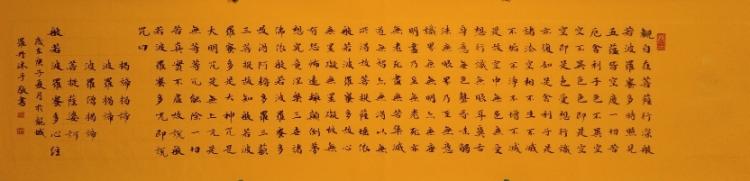 觀自在菩薩行深般
若波羅蜜多時照見
五蘊皆空度一切苦
厄舍利子色不異空
空不異色色即是空
空即是色受想行識
亦復如是舍利子是
諸法空相不生不滅
不垢不淨不增不減
是故空中無色無受
想行識無眼耳鼻舌
身意無色聲香味觸
法無眼界乃至無意
識界無無明亦無無
明盡乃至無老死亦
無老死盡無苦集滅
道無智亦無得以無
所得故菩提薩埵依
般若波羅蜜多故心
無罣礙無罣礙故無
有恐怖遠離顛倒夢
想究竟涅槃三世諸
佛依般若波羅蜜多
故得阿耨多羅三藐
三菩提故知般若波
羅蜜多是大神咒是
大明咒是無上咒是
無等等咒能除一切
苦真實不虛故說般
若波羅蜜多咒即說
咒曰
揭諦揭諦
波羅揭諦
波羅僧揭諦
菩提薩婆訶
般若波羅蜜多心經
歲在庚子夏月於龍城
羅丹沐手敬書